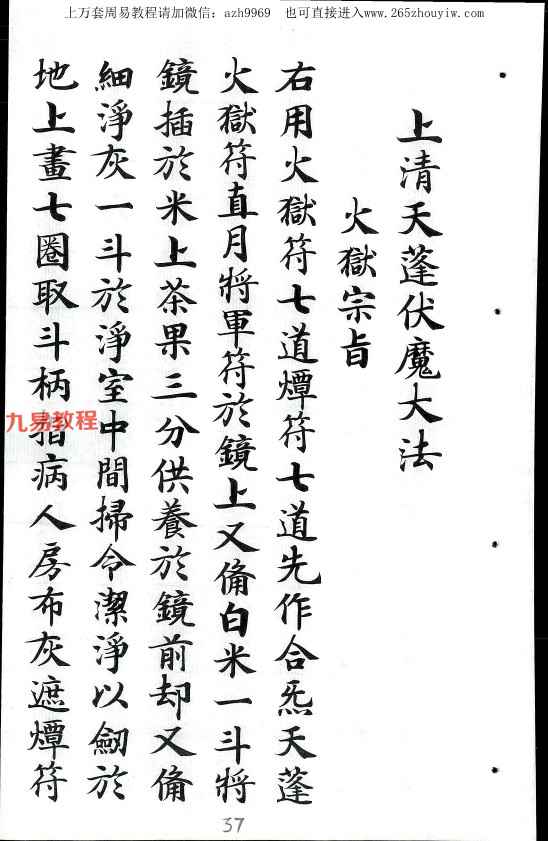 上万套周易教程请加微信:azh9969 也可直接进入www.265zhouyiw.com
上清天蓬伏魔大法
火獄宗旨
右用火獄符七道燂符七道先作合炁天蓬
火獄符直月將軍符於鏡上又俻白米一斗將
鏡插於米上茶果三分供養於鏡前却又俻
細淨灰一斗於淨室中間掃令潔淨以劒於
地上畫七圈取斗柄指病人房布灰遮燂符
九易教程
37